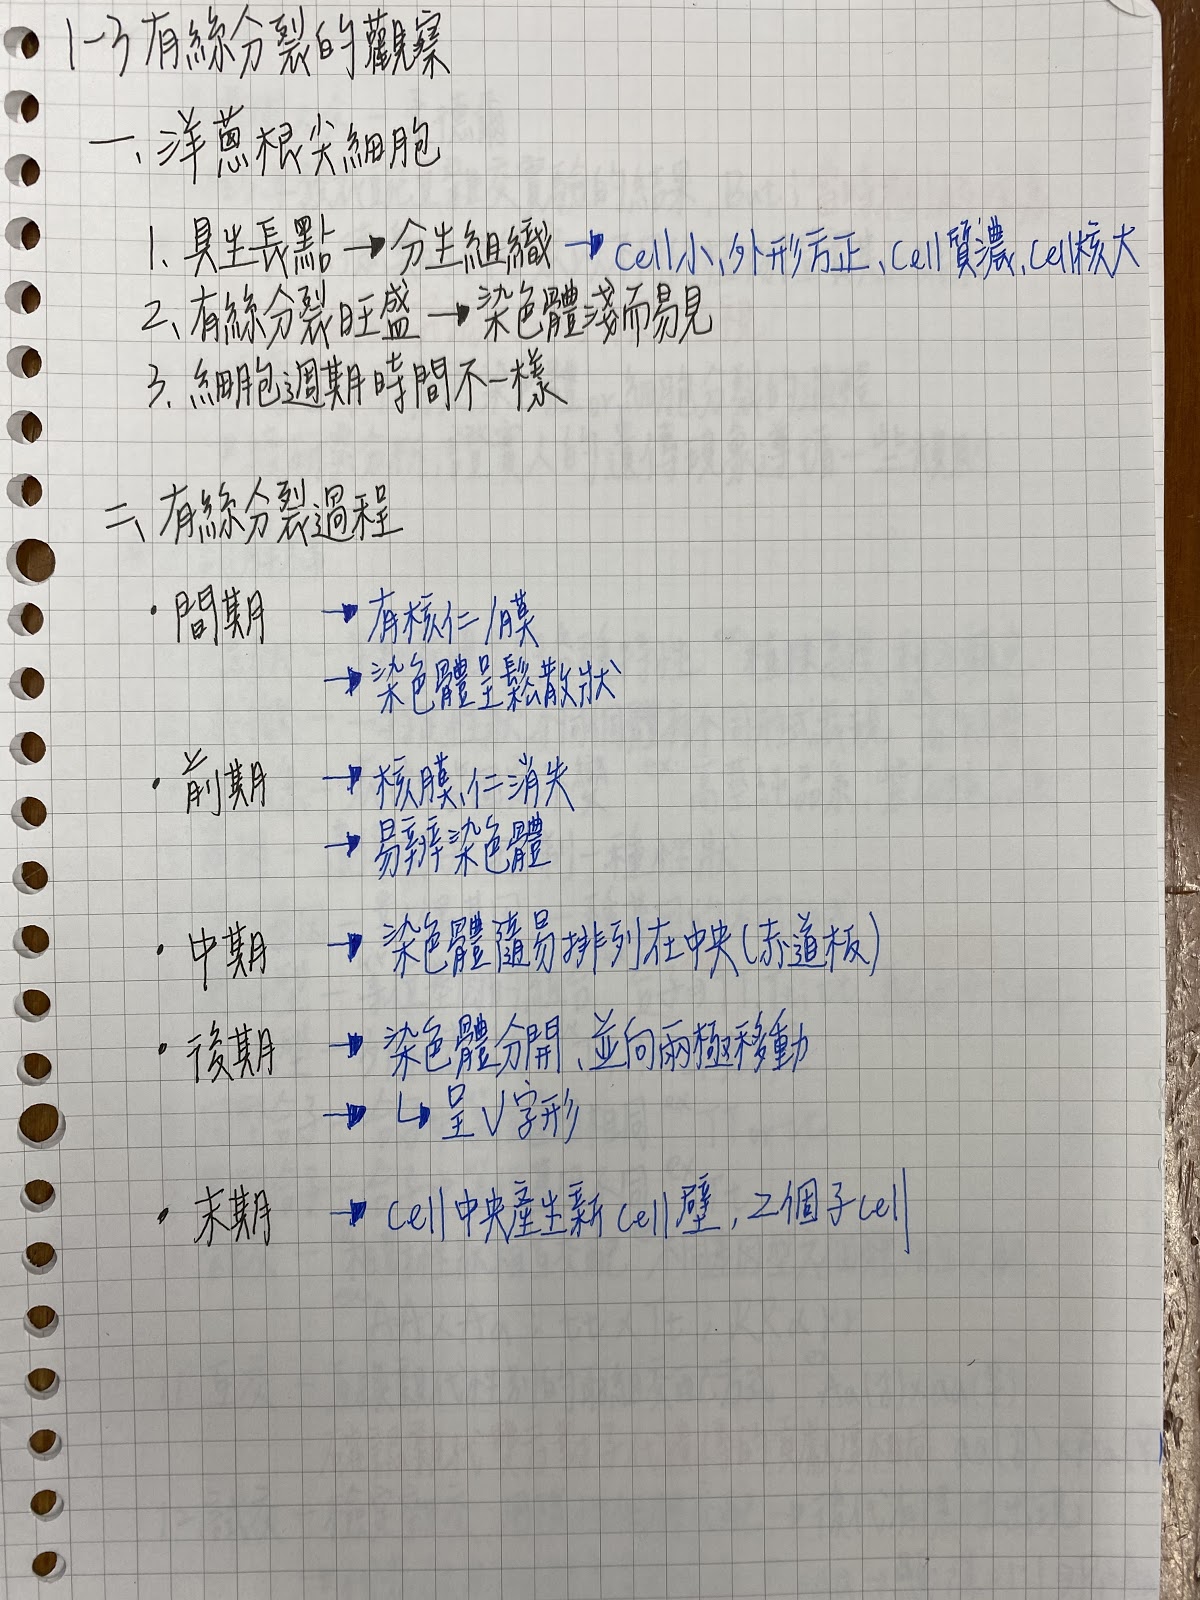 1-3 有絲分裂的觀察
一、洋蔥根尖細胞
1. 具生長點→分生組織→cell小、外形方正、cell質濃、cell核大
2、有絲分裂旺盛→染色體淺而易見
3. 細胞週期時間不一樣
二、有絲分裂過程
・間期 →有核仁/膜
→染色體呈鬆散狀
・前期 →核膜、仁消失
→易辨染色體
・中期 →染色體隨易排列在中央(赤道板)
・後期 →染色體分開、並向兩極移動
→ ↳呈V字形
・末期 →cell中央產生新cell壁,2個子cell